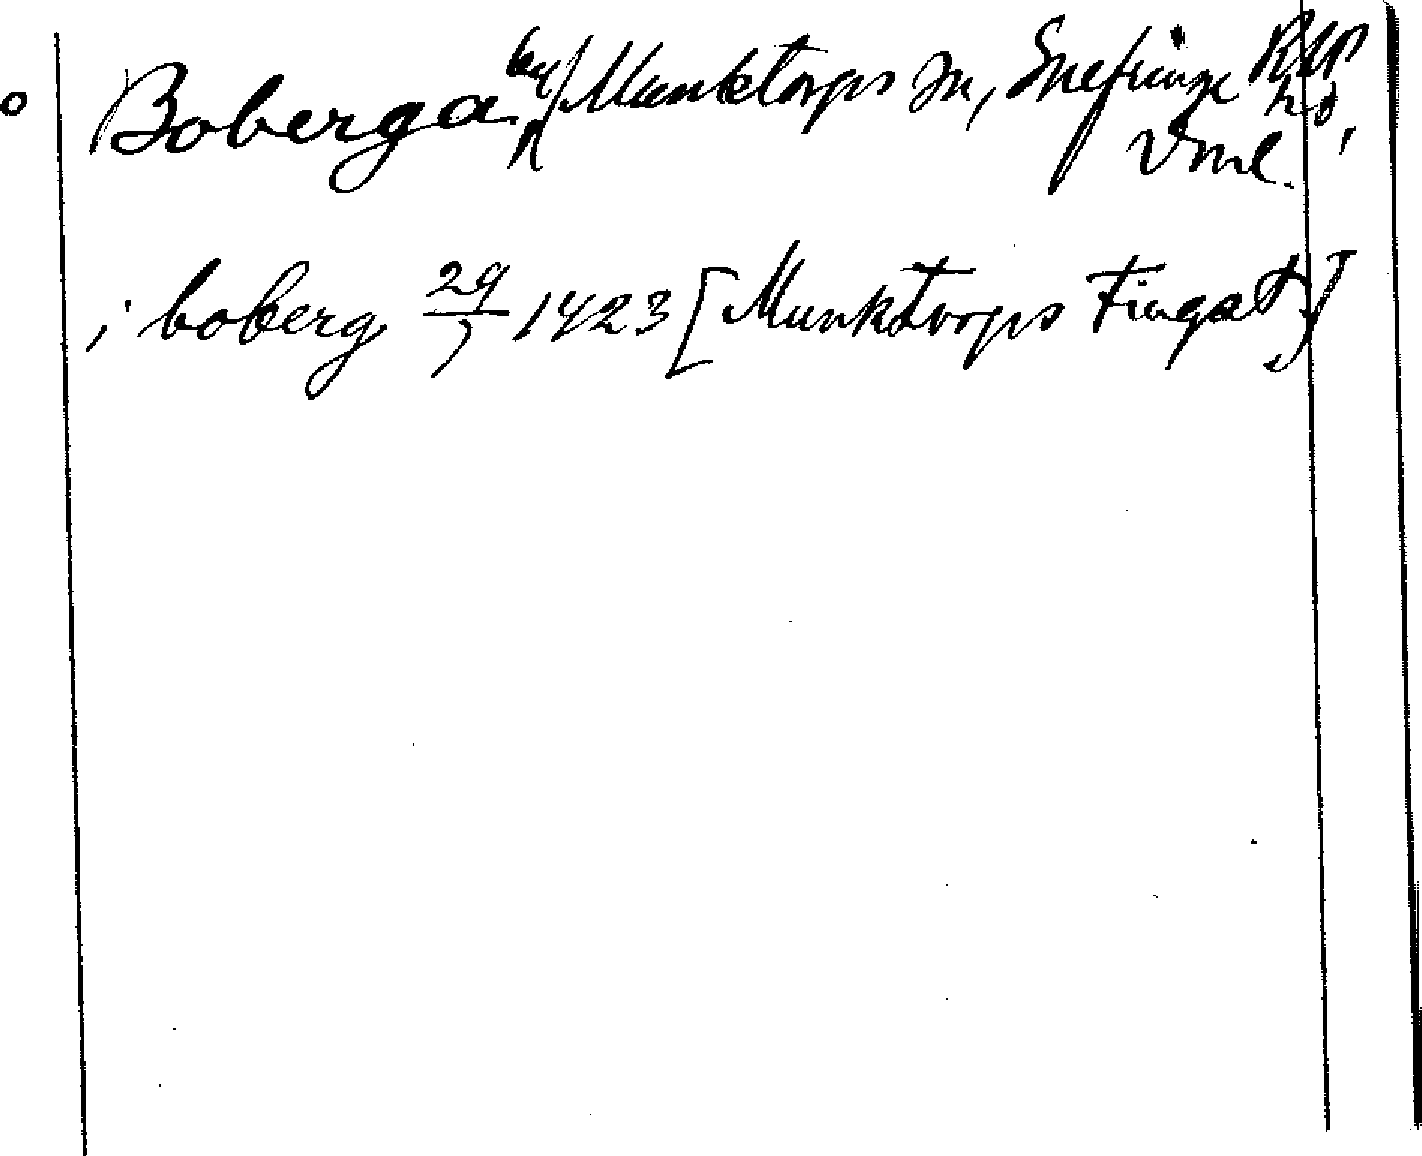 Boberga by Munktorps sn, Snefringe
hd,
Vml.
i boberg 29/7 1423 [Munktorps Tingst]